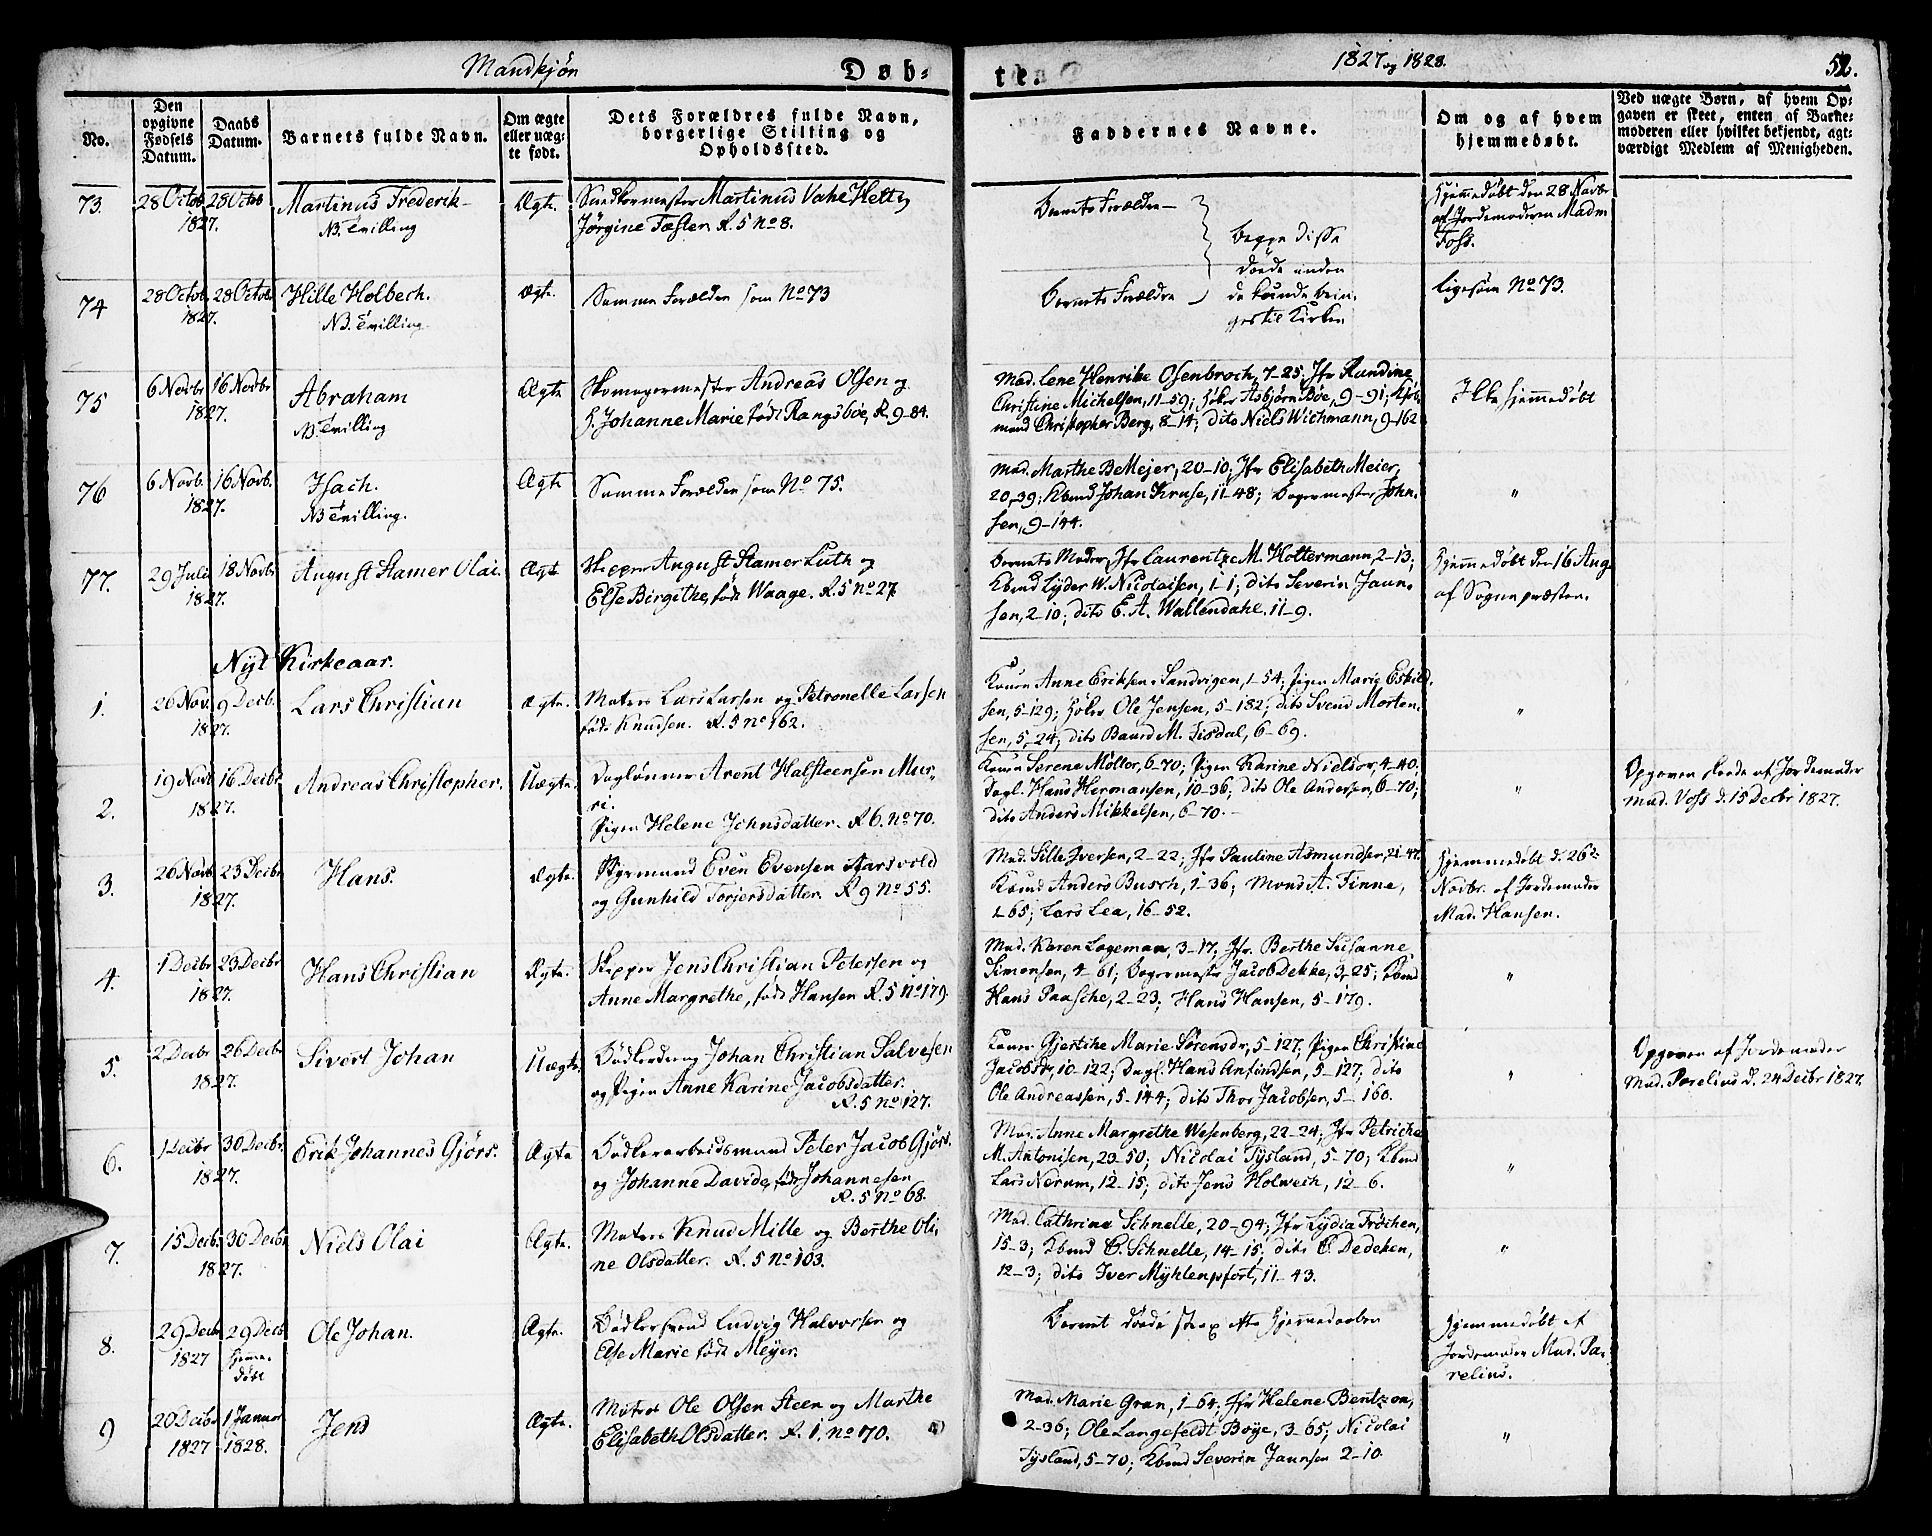 Mandkjøn
Døb-
te.
1827 og 1828.
52.
No.
Den opgivne Fødsels Datum.
Daabs Datum.
Barnets fulde Navn.
Om ægte eller uæg-te født.
Dets Forældres fulde Navn, borgerlige Stilling og Opholdssted.
Faddernes Navne.
Om og af hvem hjemmedøbt.
Ved uægte Børn, af hvem Op-
gaven er skeet, enten af Barne-
moderen eller hvilket bekjendt, agt-
værdigt Medlem af Menigheden.
73.
28 Octob. 1827.
28 Octob
Martinus Frederik
NB. Tvilling
Ægte.
Snedkermester Martinus Vahe Hett og
Jørgine Fæster R. 5 No 8.
Barnets Forældre
Begge disse
døde inden
de kunde brin-
ges til Kirken
Hjemmedøbt den 28 Novbr
af Jordemoderen Madm
Foss.
74
28 Octob. 1827.
28 Octob.
Hille Holbech.
NB. Tvilling.
Ægte.
Samme Forældre som No 73
Barnets Forældre
ligesom No 73.
75
6 Novbr 1827.
16 Novbr
Abraham
NB. Tvilling
Ægte
Skomagermester Andreas Olsen og
H. Johanne Marie født Rangsbøe, R. 9-84.
Mad. Lene Henrike Osenbroch, 7-25; Jfr Rundine
Christine Michelsen, 11-59; Høker Asbjørn Bøe, 9-91; Kjøb-
mand Christopher Berg, 8-14; dito Niels Wichmann, 9-162
Ikke hjemmedøbt
76
6 Novb. 1827.
16 Novb.
Isach.
NB Tvilling.
Ægte
Samme Forældre som No 75.
Mad. Marthe B Mejer, 20-10; Jfr Elisabeth Meier,
20-39; Kbmd Johan Kruse, 11-48; Bagermester John-
sen, 9-144.
"
77.
29 Juli 1827.
18 Novbr
August Hamer Olai.
Ægte
Skipper August Hamer Luth og
Else Birgithe, født Waage. R. 5 No 27
Barnets Moder, Jfr Laurentze M. Holtermann, 2-13;
Kbmd Lyder W. Nicolaisen, 1-1; dito Severin Jaun-
sen, 2-10; dito E. A. Wallendahl. 11-9.
Hjemmedøbt den 16 Aug
af Sognepræsten.
Nyt Kirkeaar.
1.
26 Nov. 1827.
9 Decb.
Lars Christian
Ægte.
Matros Lars Larsen og Petronelle Larsen
født Knudsen. R. 5 No 162.
Konen Anne Eriksen Sandvigen, 1-54; Pigen Marie Eskild-
sen, 5-129; Høker Ole Jensen, 5-182; dito Svend Morten-
sen, 5-24; dito Baard M. Sisdal, 6-69.
"
2.
19 Novb 1827.
16 Decbr
Andreas Christopher.
Uægte.
Dagløner Arent Halsteensen Mur-
ri.
Pigen Helene Johnsdatter. R 6. No 70.
Konen Serene Møller, 6-70; Pigen Karine Nielsdr, 4-40;
Dagl. Hans Hermansen, 10-36; dito Ole Andersen, 6-70;
dito Anders Mikkelsen, 6-70.
"
Opgaven skede af Jordemoder
Mad. Voss d. 15 Decbr 1827.
3.
26 Novb 1827.
23 Decbr
Hans.
Ægte.
Styrmand Even Evensen Aarsvold
og Gunhild Torjersdatter. R 9 No 55.
Mad. Sille Iversen, 2-22; Jfr Pauline Asmundsen, 21-47.
Kbmd Anders Busch, 1-36; Mons A. Finne,
1-65; Lars Lea, 16-52.
Hjemmedøbt d. 26de
Novbr. af Jordemoder
Mad. Hansen.
4.
1 Decbr 1827.
23 Decbr
Hans Christian
Ægte.
Skipper Jens Christian Petersen og
Anne Margrethe, født Hansen R. 5 No 179.
Mad. Karen Lageman, 3-17; Jfr. Berthe Susanne
Simonsen, 4-61; Bagermestr Jacob Dekke, 3-25; Kbmd
Hans Paasche, 2-23; Hans Hansen, 5-179.
"
5.
2 Decbr 1827.
26 Decbr
Sivert Johan
Uægte.
Bødkerdreng Johan Christian Salvesen
og Pigen Anne Karine Jacobsdatter.
R. 5 No 127.
Konen Gjertike Marie Sørensdr, 5-127; Pigen Christine
Jacobsdr, 10-122; Dagl. Hans Anfindsen, 5-127; dito
Ole Andreassen, 5-144; dito Thor Jacobsen, 5-160.
"
Opgaven af Jordemoder
Mad. Parelius d. 24 Decbr 1827.
6.
1 Decbr 1827.
30 Decbr.
Erik Johannes Gjørs.
Ægte
Bødkerarbeidsmand Peter Jacob Gjørs.
og Johanne Davide, født Johannesen
R. 5 No 68.
Mad. Anne Margrethe Wesenberg, 22-24; Jfr Petriche
M. Antonisen, 23-50; Nicolai Tysland, 5-70; Kbmd
Lars Nerum, 12-15; dito Jens Holweih, 12-6.
"
7.
15 Decbr. 1827.
30 Decbr
Niels Olai
Ægte.
Matros Knud Mille og Berthe Oli-
ne Olsdatter. R. 5 No 103.
Mad. Cathrine Schnelle, 20-94; Jfr Lydia Frøchen,
15-3; Kbmd C. Schnelle, 14-15; dito C. Dedeken,
12-3; dito Iver Myhlenpfort, 11-43.
"
8.
29 Decbr 1827
29 Decb
hjemme-
døbt
Ole Johan.
Ægte.
Bødkersvend Ludvig Halvorsen og
Else Marie født Meyer.
Barnet døde strax efter Hjemmedaaben
Hjemmedøbt af
Jordemoder Mad. Pa-
relius.
9
20 Decbr 1827
1 Januar 1828.
Jens
Ægte.
Matros Ole Olsen Steen og Marthe
Elisabeth Olsdatter. R. 1. No 170.
Mad. Marie Gran, 1-64; Jfr Helene Bentzon,
2-36; Ole Langefeldt Boye, 3-65; Nicolai
Tysland, 5-70; Kbmd Severin Jaunsen 2-10.
"